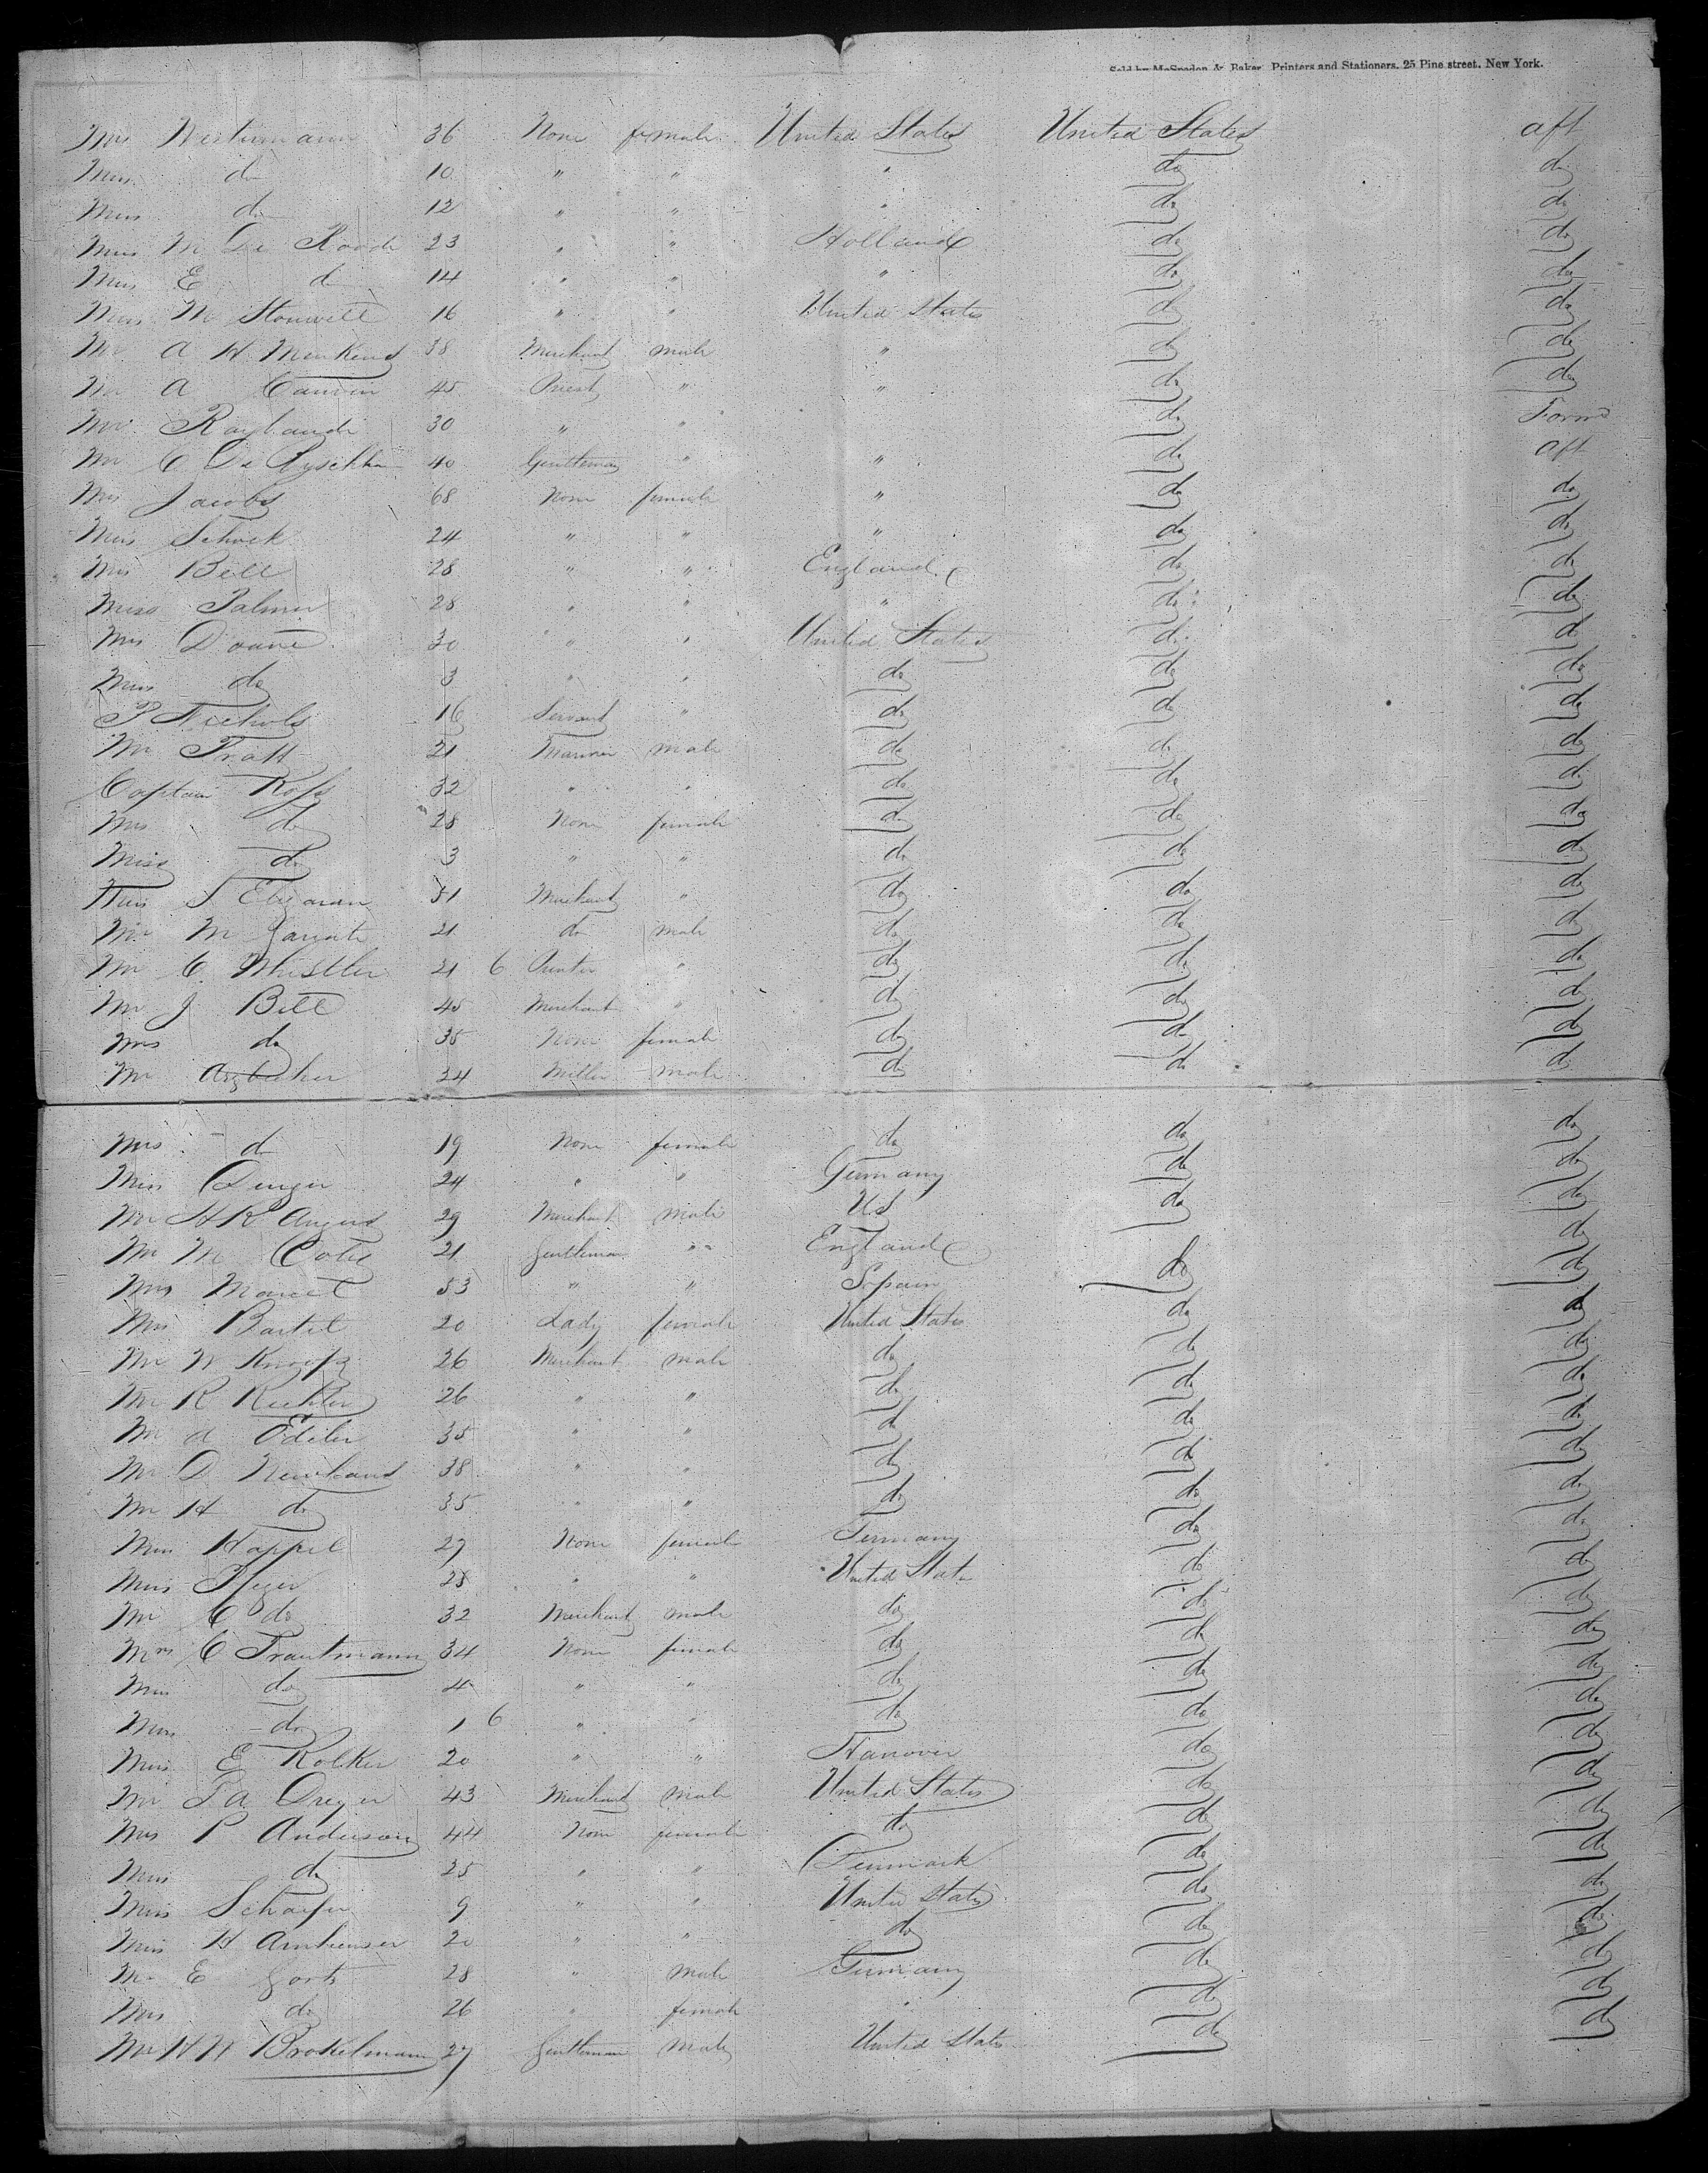 Sold by McSpedon & Baker, Printers and Stationers, 25 Pine street, New York.
Mrs Westermann 36 None female United States United States aft
Miss do 10 " " " do do
Miss do 12 " " " do do
Miss M De Roode 23 " " Holland do do
Miss E d 14 " " " do do
Miss M Stonwell 16 " " United States do do
Mr A H Menkens 38 Merchant male " do do
Mr A 45 Priest " " do do
Mr 30 " " do Forwd
Mr C De 40 Gentleman " " do aft
Mrs Jacobs 68 None female " do do
Miss Schock 24 " " " do do
Mrs Bell 28 " " England do do
Miss Palmer 28 " " " do do
Mrs Doane 30 " " United States do do
Miss do 3 " " do do do
P Nichols 16 Servant " do do do
Mr Pratt 21 Mariner male do do do
Captain Ross 32 " " do do do
Mrs do 28 None female do do do
Miss do 3 " " do do do
S 31 Merchant " do do do
Mr M 21 do male do do do
Mr C Whistler 21 6 " do do do
Mr J Bell 45 Merchant " do do do
Mrs do 35 None female do do do
Mr 24 Miller male do do do
Mrs d 19 None female do do do
Miss 24 " " Germany do do
Mr H R Angus 29 Merchant male US do do
Mr M Cotes 21 Gentleman " " England do do
Mrs 33 " " Spain do do
Mrs Bartel 20 Lady female United States do do
Mr W Knoop 26 Merchant male do do do
Mr R Richter 26 " " do do do
Mr A 35 " " do do do
Mr D Newhaus 38 " " do do do
Mr H do 35 " " do do do
Miss Happel 27 None female Germany do do
Miss 28 " " United States do do
Mr C do 32 Merchant male do do do
Mrs C Trautmann 34 None female do do do
Miss do 4 " " do do do
Miss do 1 6 " " do do do
Miss E Rolker 20 " " Hanover do do
Mr A Dreyer 43 Merchant male United States do do
Mrs P Anderson 44 None female do do do
Miss do 25 " " Denmark do do
Miss Schaefer 9 " " United States do do
Miss H 20 " " do do do
Mr E 28 " male Germany do do
Mrs do 26 " female " do do
Mr H W Brokelmann 27 Gentleman Male United States do do